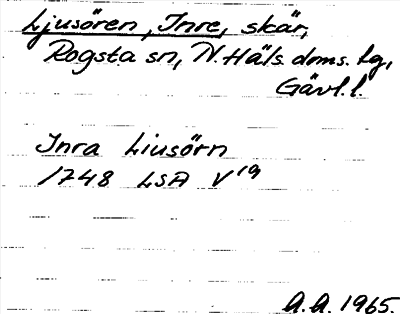 Ljusören, Inre, skär,
Rogsta sn, N. Häls. dms. lg,
Gävl. l.
Inra Liusörn
1748 LSA V¹⁹
A.A. 1965.